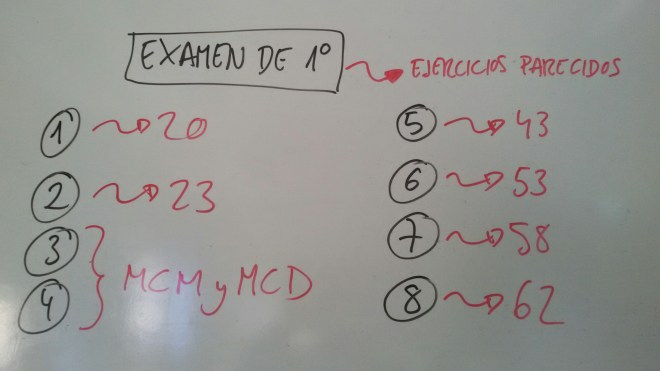 EXAMEN DE 1º → EJERCICIOS PARECIDOS
1 → 20
2 → 23
3
4 } MCM y MCD
5 → 43
6 → 53
7 → 58
8 → 62